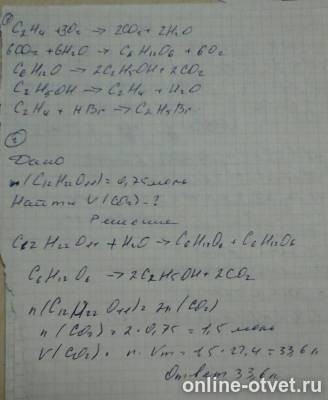 C₂H₄ + 3O₂ → 2CO₂ + 2H₂O
6CO₂ + 6H₂O → C₆H₁₂O₆ + 6O₂
C₆H₁₂O → 2C₂H₅OH + 2CO₂
C₂H₅OH → C₂H₄ + H₂O
C₂H₄ + HBr → C₂H₅Br
Дано
n(C₁₂H₂₂O₁₁) = 0,75 моль
Найти V(CO₂) - ?
Решение
C₁₂H₂₂O₁₁ + H₂O → C₆H₁₂O₆ + C₆H₁₂O₆
C₆H₁₂O₆ → 2C₂H₅OH + 2CO₂
n(C₁₂H₂₂O₁₁) = 2n(CO₂)
n(CO₂) = 2 · 0,75 = 1,5 моль
V(CO₂) = n · Vm = 1,5 · 22,4 = 33,6 л
Ответ 33,6 л
online-otvet.ru